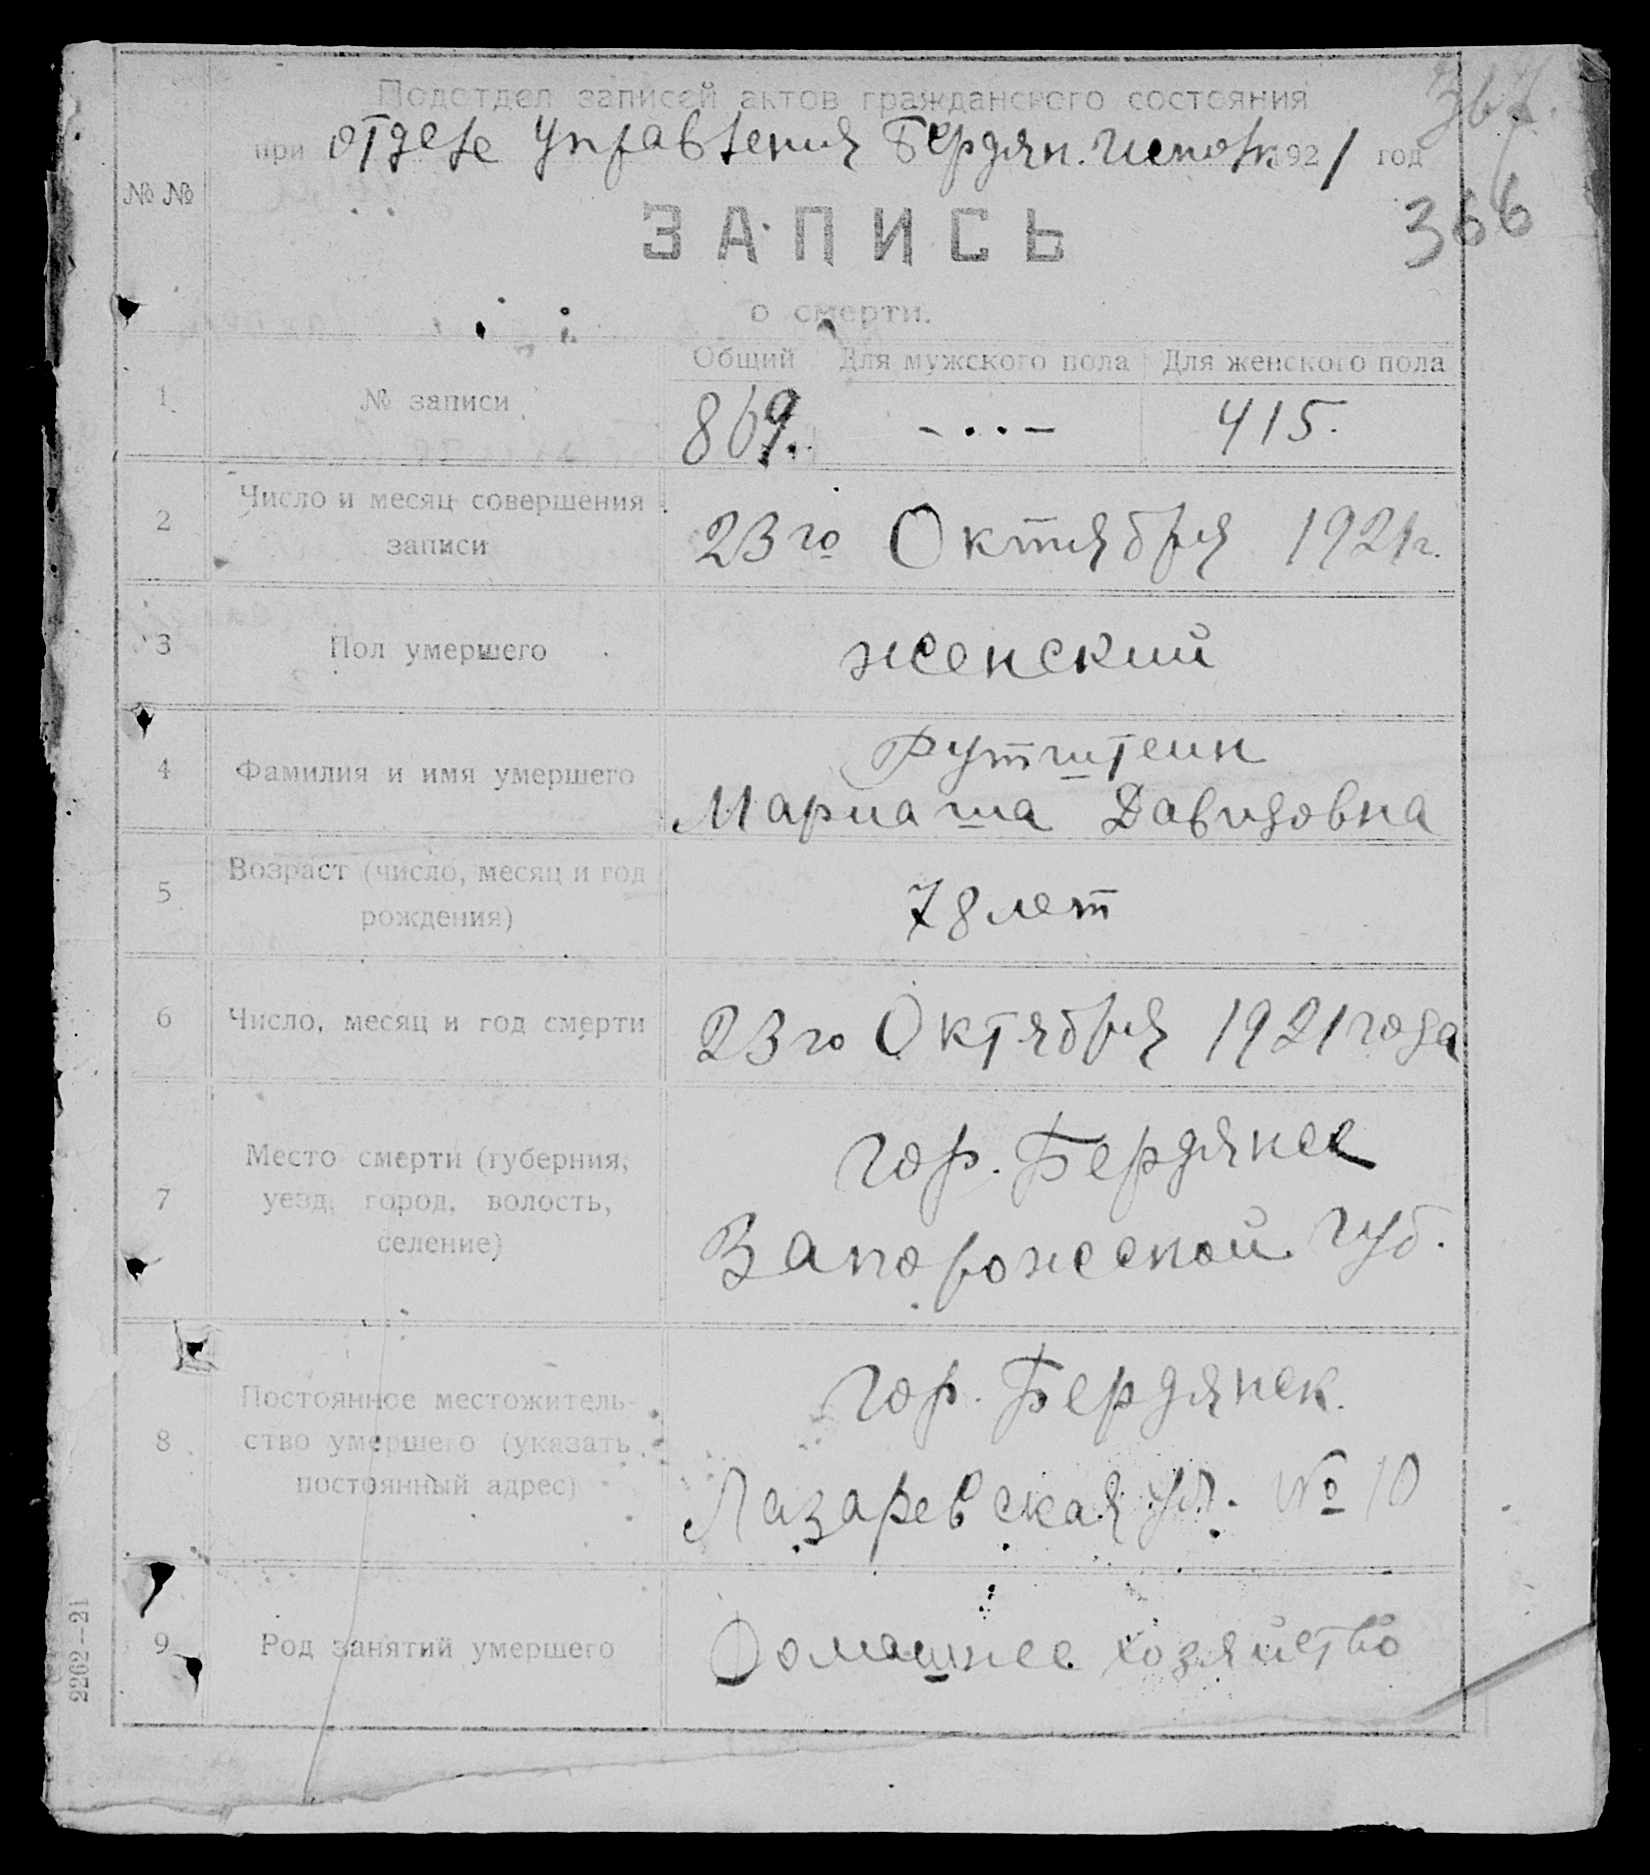 Подотдел записей актов гражданского состояния
при отделе Управления Бердян. Исполк. 1921 год
367.
366
№ №
ЗАПИСЬ
о смерти.
Общий Для мужского пола Для женского пола
1 № записи 869. -··- 415.
2 Число и месяц совершения записи 23го Октября 1921г.
3 Пол умершего женский
4 Фамилия и имя умершего Рутштеин
Мариаша Давидовна
5 Возраст (число, месяц и год рождения) 78 лет
6 Число, месяц и год смерти 23го Октября 1921 года
7 Место смерти (губерния, уезд, город, волость, селение) гор. Бердянск
Запорожской губ.
8 Постоянное местожительство умершего (указать постоянный адрес) гор. Бердянск.
Лазаревская ул. № 10
9 Род занятий умершего Домашнее хозяйство
2262—21